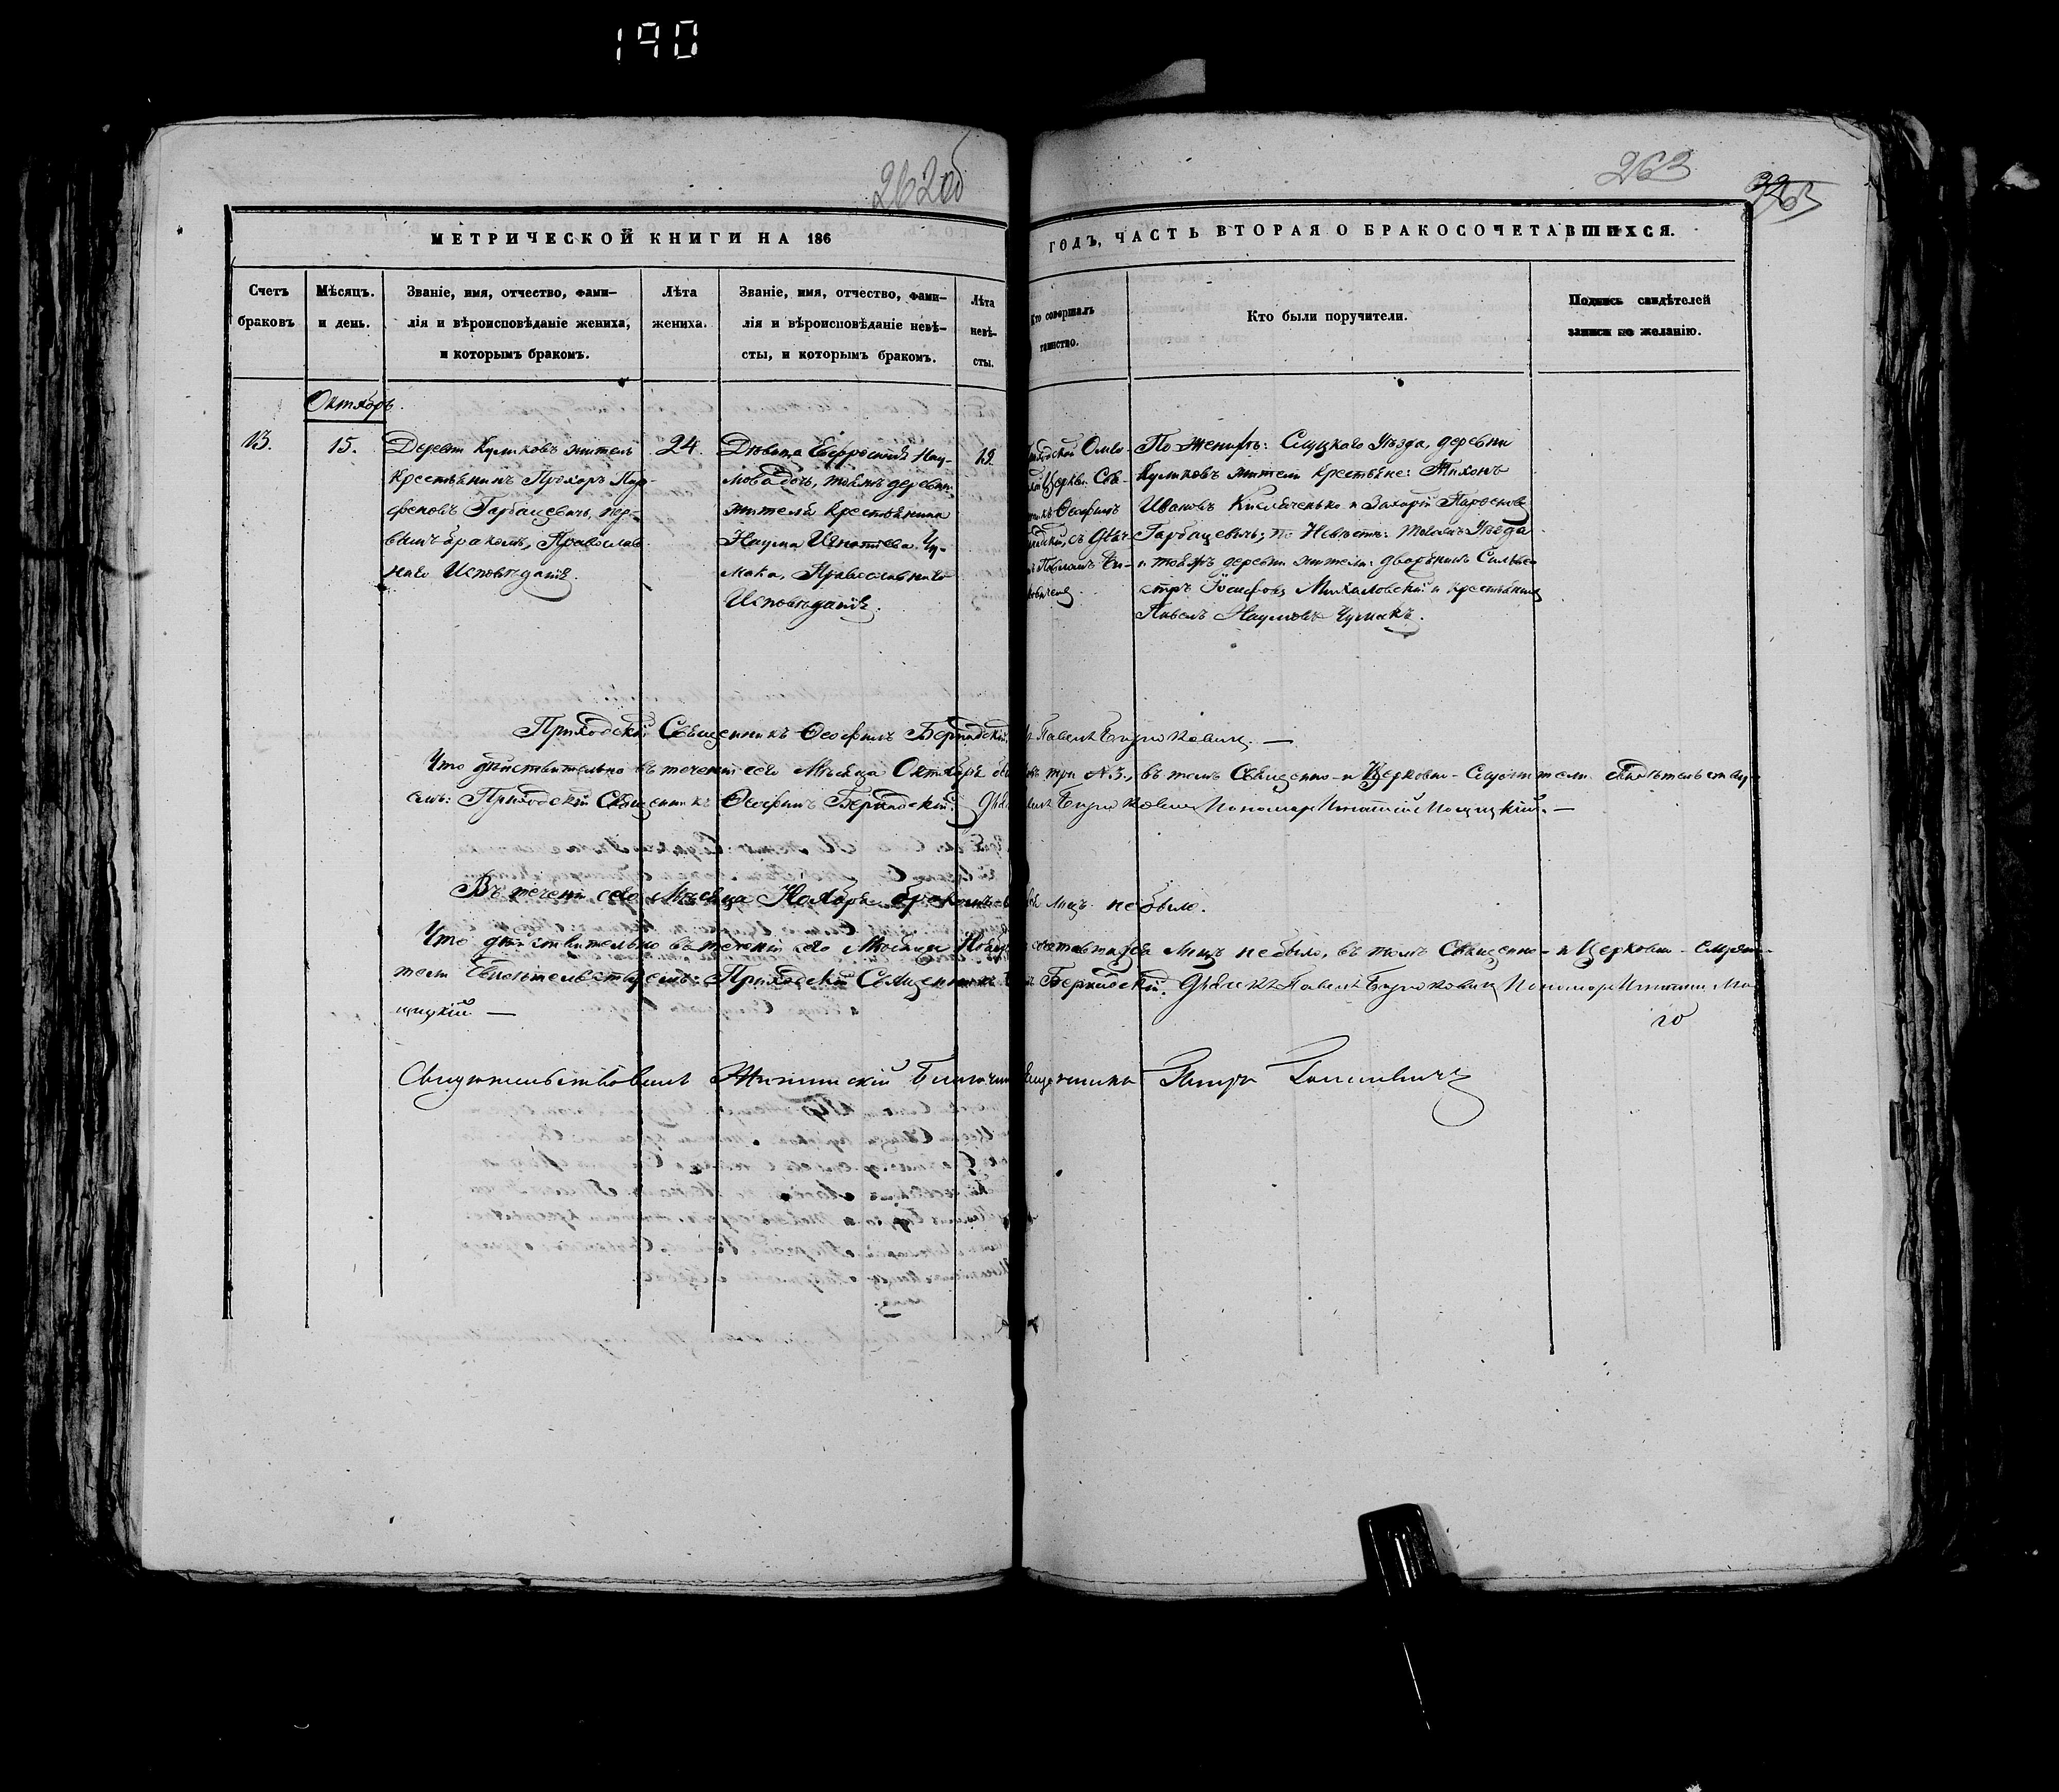 190
262об
263
МЕТРИЧЕСКОЙ КНИГИ НА 186
ГОДЪ, ЧАСТЬ ВТОРАЯ О БРАКОСОЧЕТАВШИХСЯ.
Счетъ
браковъ
Мѣсяцъ.
и день.
Званіе, имя, отчество, фами-
лія и вѣроисповѣданіе жениха,
и которымъ бракомъ.
Лѣта
жениха.
Званіе, имя, отчество, фами-
лія и вѣроисповѣданіе невѣ-
сты, и которымъ бракомъ.
Лѣта
невѣ-
сты.
Кто совершалъ
таинство.
Кто были поручители.
Подпись свидѣтелей
записи по желанію.
Октябрь.
13.
15.
Деревни Куликовъ житель
Крестьянинъ Прохоръ Пар-
феновъ Гарбацевичъ, пер-
вымъ бракомъ, Православ-
наго Исповѣданія.
24.
Дѣвица Евфросинія Нау-
мова дочь, тойжъ деревни
жителя Крестьянина
Наума Игнатіева Чу-
мака, Православнаго
Исповѣданія.
19.
Церкви Свя-
Ѳеофилъ
По Женихѣ: Слуцкаго Уѣзда, деревни
Куликовъ жители Крестьяне: Тихонъ
Ивановъ и Захарій Парфеновъ
Гарбацевичъ; по Невѣстѣ: тогожъ Уѣзда
и тойжъ деревни жители: дворянинъ Сильве-
стръ Іосифовъ Михаловскій и крестьянинъ
Павелъ Наумовъ Чумакъ.
Приходскій Священникъ Ѳеофилъ Бернадскій. Павелъ Бирюковичъ. —
Что дѣйствительно въ теченіи сего Мѣсяца Октября три № 3., въ томъ Священно- и Церковно-Служители свидѣтельству-
емъ: Приходскій Священникъ Ѳеофилъ Бернадскій. Бирюковичъ Пономарь Игнатій Мощицкій. —
Въ теченіи сего Мѣсяца Ноября лицъ небыло.
Что дѣйствительно въ теченіи сего Мѣсяца Ноября лицъ небыло, въ томъ Священно- и Церковно-Служи-
тели Свидѣтельствуемъ: Приходскій Священникъ Бернадскій. Дьячекъ Павелъ Бирюковичъ Пономарь Игнатій Мо-
щицкій —
Свидѣтельствовалъ